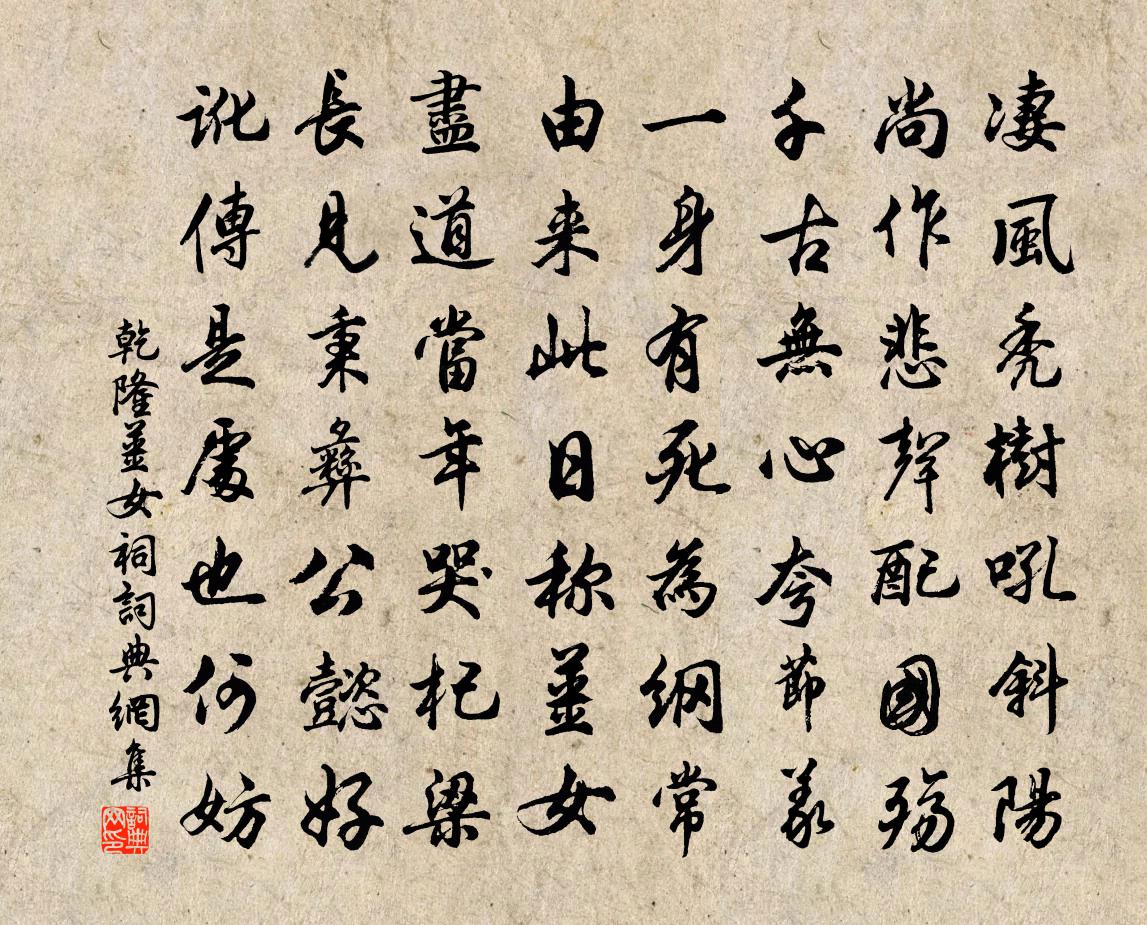 凄風禿樹吼斜陽
尚作悲聲配國殤
千古無心夸節義
一身有死為綱常
由来此日称薑女
盡道當年哭杞梁
長見秉彝公懿好
訛傳是處也何妨
乾隆薑女祠詞典網集
詞典網印